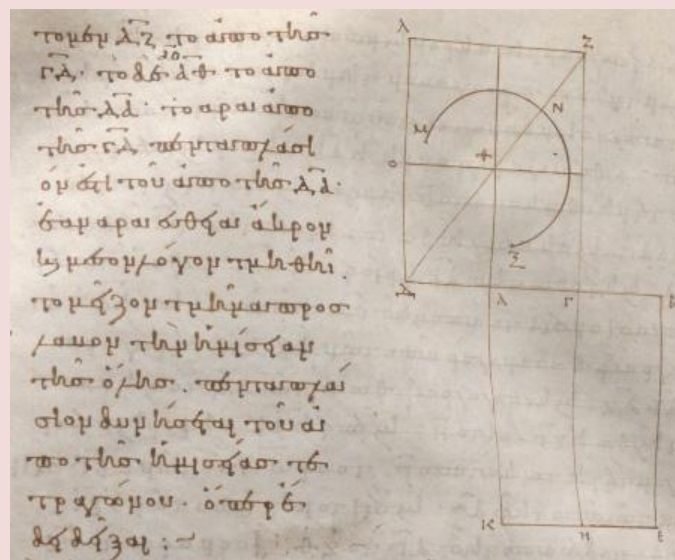 το μὲν ΔΖ το ἀπο τῆς
ΓΔ· το δὲ ΔΘ το ἀπο
τῆς ΔΑ· το αρα ἀπο
τῆς ΓΔ πενταπλάσι
όν ἐστὶ τοῦ ἀπο τῆς ΔΑ·
ἐαν αρα ευθεῖα ἄκρον
καὶ μεσον λόγον τμηθῆι
το μεῖζον τμῆμα προσ
λαβον τὴν ἡμίσειαν
τῆς ὅλης. πενταπλά
σιον δυνήσεται τοῦ ἀ
πο τῆς ἡμισείας τε
τραγώνου· ὅπερ ἔ
δει δεῖξαι :~
Λ
Ζ
Ν
Μ
Ο
Ξ
Δ
Α
Γ
Β
Κ
Η
Ε